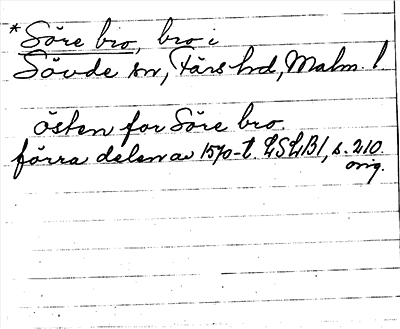 *Söre bro, bro i
Sövde sn, Färs hd, Malm. l.
östen for Söre bro.
förra delen av 1570-t. LSLB1, s. 210
orig.